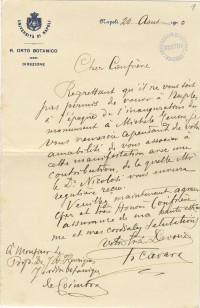 1
UNIVERSITÀ DI NAPOLI
R. ORTO BOTANICO
DIREZIONE
Napoli, 20
Cher Confrère
Regrettant qu'il ne vous soit
pas permis de venir à Naples,
à l'époque de l'inauguration du
monument à Michele
vous remercie cependant de votre
amabilité de vous associer à
cette manifestation avec une
contribution, de la quelle
le Dr Nicolosi vous enverra
régulière reçu.
Veuillez maintenant agréer
Cher et très Honoré Confrère
l'assurance de ma haute estime
et mes cordiales salutations
Votre très Dévoué
F. Cavara
À Monsieur
Prof. Dr J. A. Henriques
Jardin botanique
de Coimbra